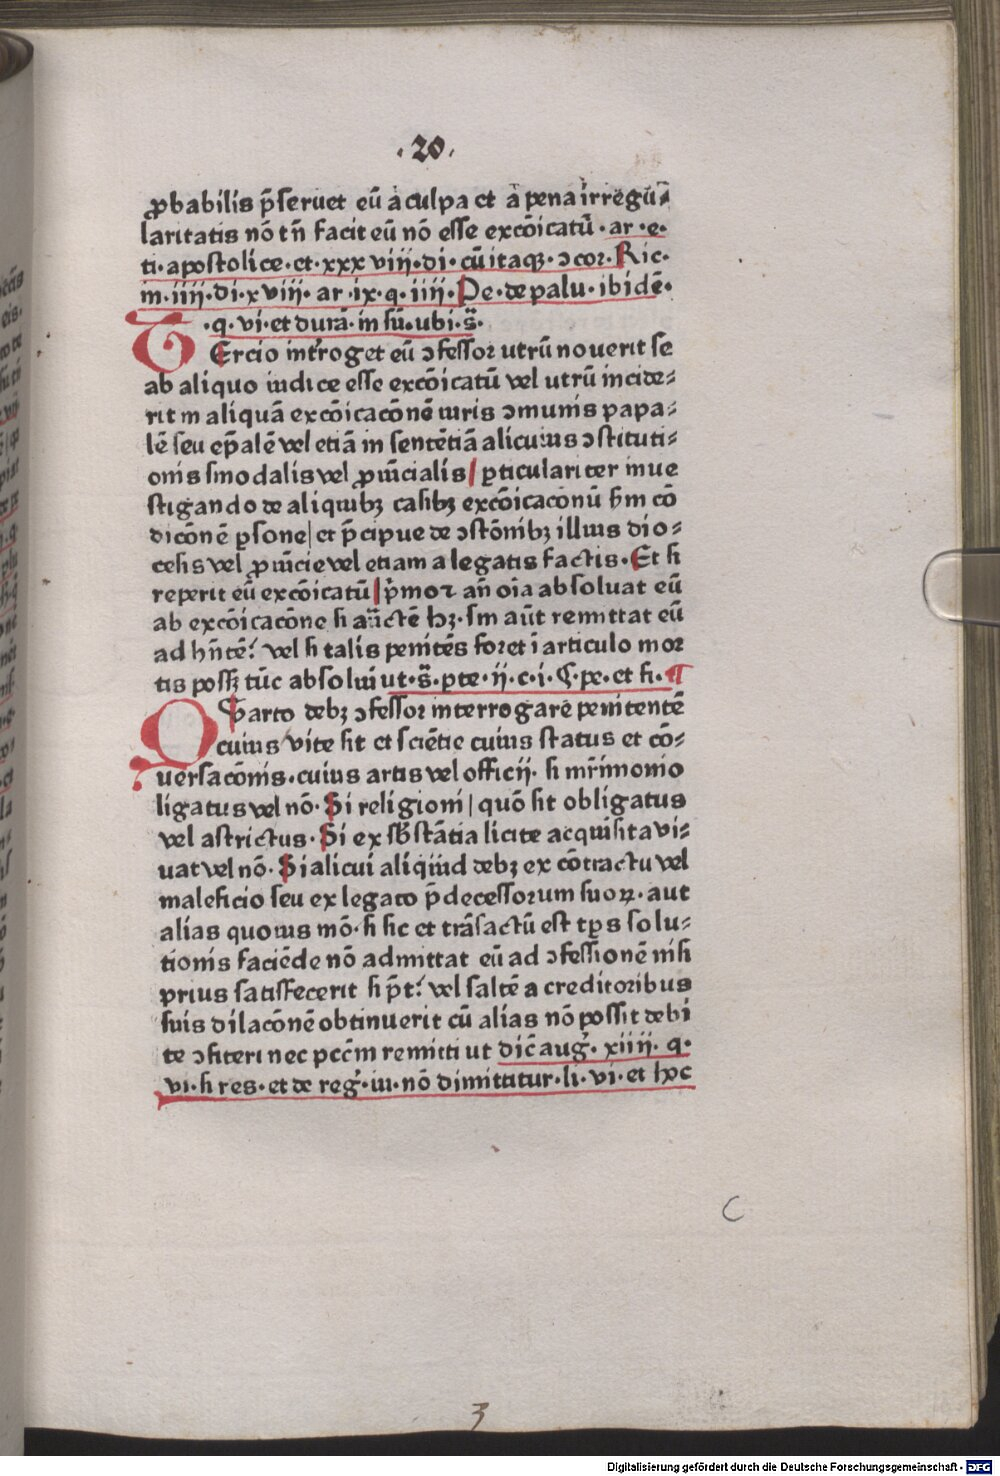 ·20·
ꝓbabilis p̄seruet eū a culpa et a pena irregu⸗
laritatis nō tn̄ facit eū nō esse excōicatū · ar · e·
ti · apostolice · et · xxxviij · di · cū itaqꝫ · ↄcor · Ric·
in · iiij · di · xviij · ar · ix · q · iiij · Pe · de palu · ibidē·
· q · vi · et durā · in sū · ubi · s̄·
TErcio int̄roget eū ↄfessor utrū nouerit se
ab aliquo iudice esse excōicatū vel utrū incide⸗
rit in aliquā excōicacōnē iuris ↄmunis papa⸗
lē seu ep̄alē vel etiā in sentētiā alicuius ↄstituti⸗
onis sinodalis vel ꝓuīcialis | ꝑticulariter inue
stigando de aliquibꝫ casibꝫ excōicaconū s̄m cō
dicōnē ꝑsone | et p̄cipue de ↄstōnibꝫ illius dio⸗
cesis vel ꝓuīcie vel etiam a legatis factis · Et si
reperit eū excōicatū | p̄moꝛ an̄ oīa absoluat eū
ab excōicacōne si auc̄tē hꝫ · sin aūt remittat eū
ad hn̄tē · vel si talis penitēs foret ī articulo mor
tis possꝫ tūc absolui ut · s̄ · ꝑte · ij · c · i · ¶ · pe · et si · ¶
QUarto debꝫ ↄfessor interrogare penitentē
cuius vite sit et sciētie cuius status et cō⸗
uersacōnis · cuius artis vel officij · si mr̄imonio
ligatus vel nō · Si religioni | quō sit obligatus
vel astrictus · Si ex sb̄stātia licite acquisita vi⸗
uat vel nō · Si alicui aliquid debꝫ ex cōtractu vel
maleficio seu ex legato p̄decessorum suoꝝ · aut
alias quouis mō · si sic et trāsactū est tp̄s solu⸗
tionis faciēde nō admittat eū ad ↄfessionē nisi
prius satisfecerit si p̄t · vel saltē a creditoribus
suis dilacōnē obtinuerit cū alias nō possit debi
te ↄfiteri nec pcc̄m remitti ut dic̄ aug · xiiij · q·
vi · si res · et de reg · iu · nō dimittitur · li · vi · et hoc
C
3
Digitalisierung gefördert durch die Deutsche Forschungsgemeinschaft - DFG